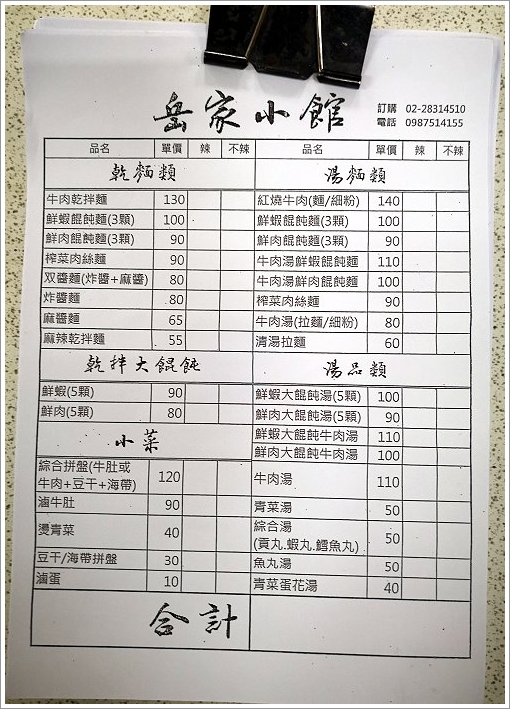 岳家小館
訂購 02-28314510
電話 0987514155
品名 單價 辣 不辣 品名 單價 辣 不辣
乾麵類
牛肉乾拌麵 130
鮮蝦餛飩麵(3顆) 100
鮮肉餛飩麵(3顆) 90
榨菜肉絲麵 90
双醬麵(炸醬+麻醬) 80
炸醬麵 80
麻醬麵 65
麻辣乾拌麵 55
乾拌大餛飩
鮮蝦(5顆) 90
鮮肉(5顆) 80
小菜
綜合拼盤(牛肚或
牛肉+豆干+海帶) 120
滷牛肚 90
燙青菜 40
豆干/海帶拼盤 30
滷蛋 10
合計
湯麵類
紅燒牛肉(麵/細粉) 140
鮮蝦餛飩麵(3顆) 100
鮮肉餛飩麵(3顆) 90
牛肉湯鮮蝦餛飩麵 110
牛肉湯鮮肉餛飩麵 100
榨菜肉絲麵 90
牛肉湯(拉麵/細粉) 80
清湯拉麵 60
湯品類
鮮蝦大餛飩湯(5顆) 100
鮮肉大餛飩湯(5顆) 90
鮮蝦大餛飩牛肉湯 110
鮮肉大餛飩牛肉湯 100
牛肉湯 110
青菜湯 50
綜合湯
(貢丸.蝦丸.鱈魚丸) 50
魚丸湯 50
青菜蛋花湯 40